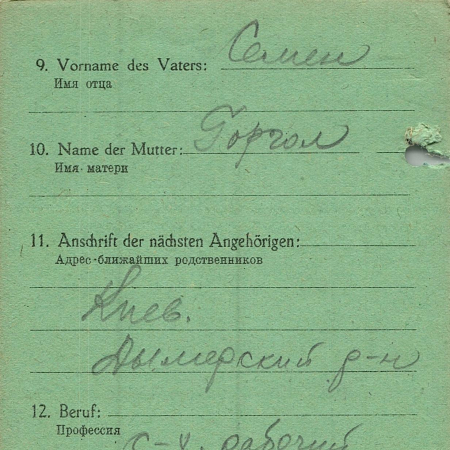 9. Vorname des Vaters: Семен
Имя отца
10. Name der Mutter: Горгол
Имя матери
11. Anschrift der nächsten Angehörigen:
Адрес ближайших родственников
Киев.
Дымерский р-н
12. Beruf:
Профессия
с-х. рабочий